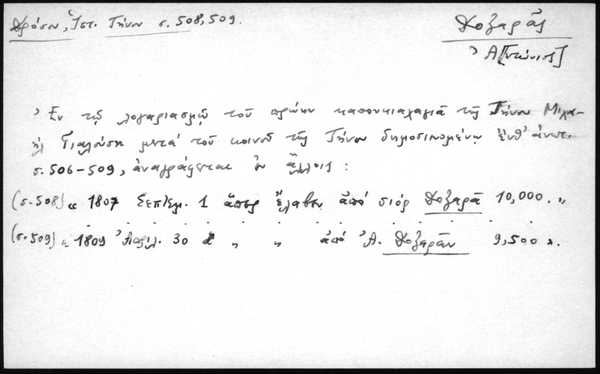 Δρόσου, Ἱστ. Τήνου σ. 508, 509.
Δοξαρᾶς
Ἀ[ντώνιος]
Ἐν τῷ λογαριασμῷ τοῦ πρώην καπουκιαχαγιᾶ τῆς Τήνου Μιχα-
ὴλ μετὰ τοῦ κοινοῦ τῆς Τήνου δημοσιευομένῳ ἔνθ' ἀνωτ.
σ. 506-509, ἀναγράφεται ἐν ἄλλοις:
(σ. 508) « 1807 Σεπτεμ. 1 ἅπερ ἔλαβεν ἀπό σιόρ Δοξαρᾶ 10,000. „
(σ. 509) „ 1809 Ἀπριλ. 30 „ „ ἀπό Ἀ. Δοξαρᾶν 9,500 ».